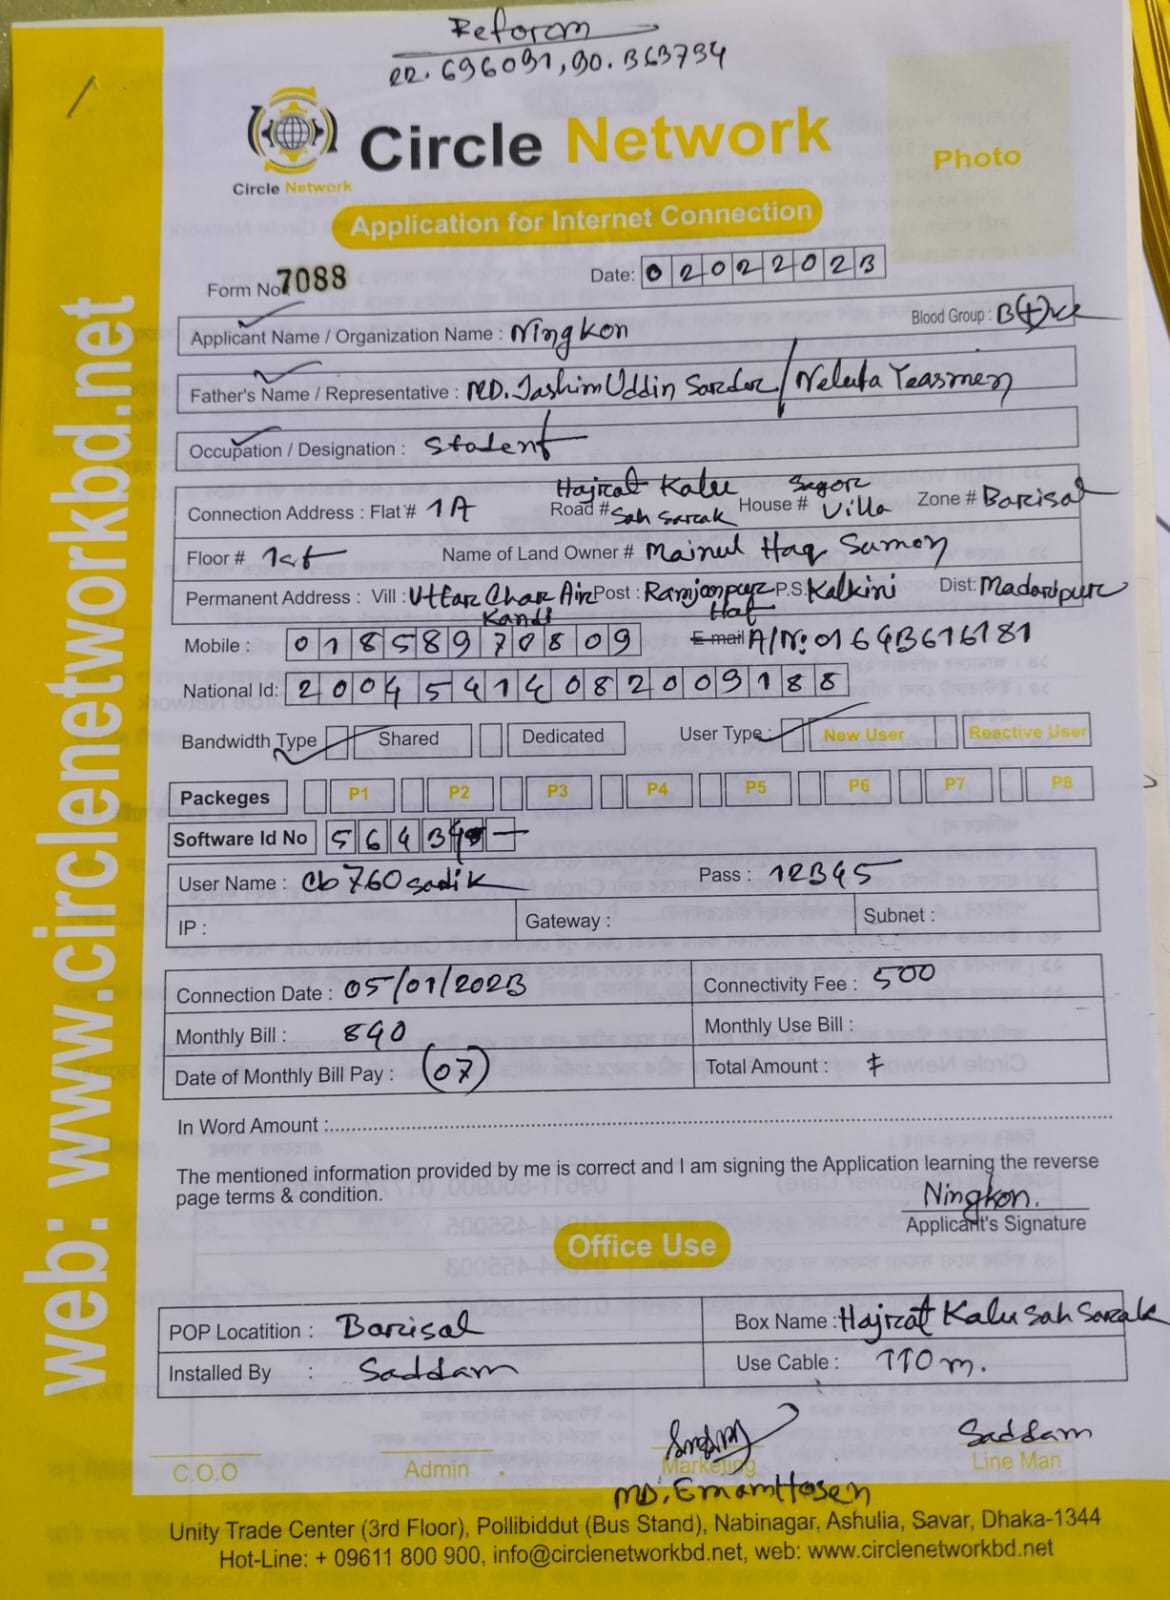 Reform
22.696091,90.363734
Circle Network
Circle Network
Photo
Application for Internet Connection
Form No. 7088
Date: 02022023
Applicant Name / Organization Name : Ningkon
Blood Group : B(+)ve
Father's Name / Representative : MD. Jashim Uddin Sardar / Neluta Yeasmen
Occupation / Designation : Student
Connection Address : Flat # 1A Road # Hajrat Kalu Sah Sarak House # Sagor Villa Zone # Barisal
Floor # 1st Name of Land Owner # Mainul Haq Sumon
Permanent Address : Vill : Uttar Char Air Kandi Post : Ramjanpur Hat P.S. Kalkini Dist: Madaripur
Mobile : 01858970809 E-mail A/N: 01643616181
National Id: 20045414082009188
Bandwidth Type Shared Dedicated User Type : New User Reactive User
Packeges P1 P2 P3 P4 P5 P6 P7 P8
Software Id No 5643
User Name : cb760sadik Pass : 12345
IP : Gateway : Subnet :
Connection Date : 05/01/2023 Connectivity Fee : 500
Monthly Bill : 840 Monthly Use Bill :
Date of Monthly Bill Pay : (07) Total Amount :
In Word Amount :
The mentioned information provided by me is correct and I am signing the Application learning the reverse
page terms & condition.
Ningkon.
Applicant's Signature
Office Use
POP Locatition : Barisal Box Name : Hajrat Kalu Sah Sarak
Installed By : Saddam Use Cable : 110m.
Saddam
C.O.O Admin Marketing Line Man
MD. Emam Hosen
Unity Trade Center (3rd Floor), Pollibiddut (Bus Stand), Nabinagar, Ashulia, Savar, Dhaka-1344
Hot-Line: + 09611 800 900, info@circlenetworkbd.net, web: www.circlenetworkbd.net
web: www.circlenetworkbd.net